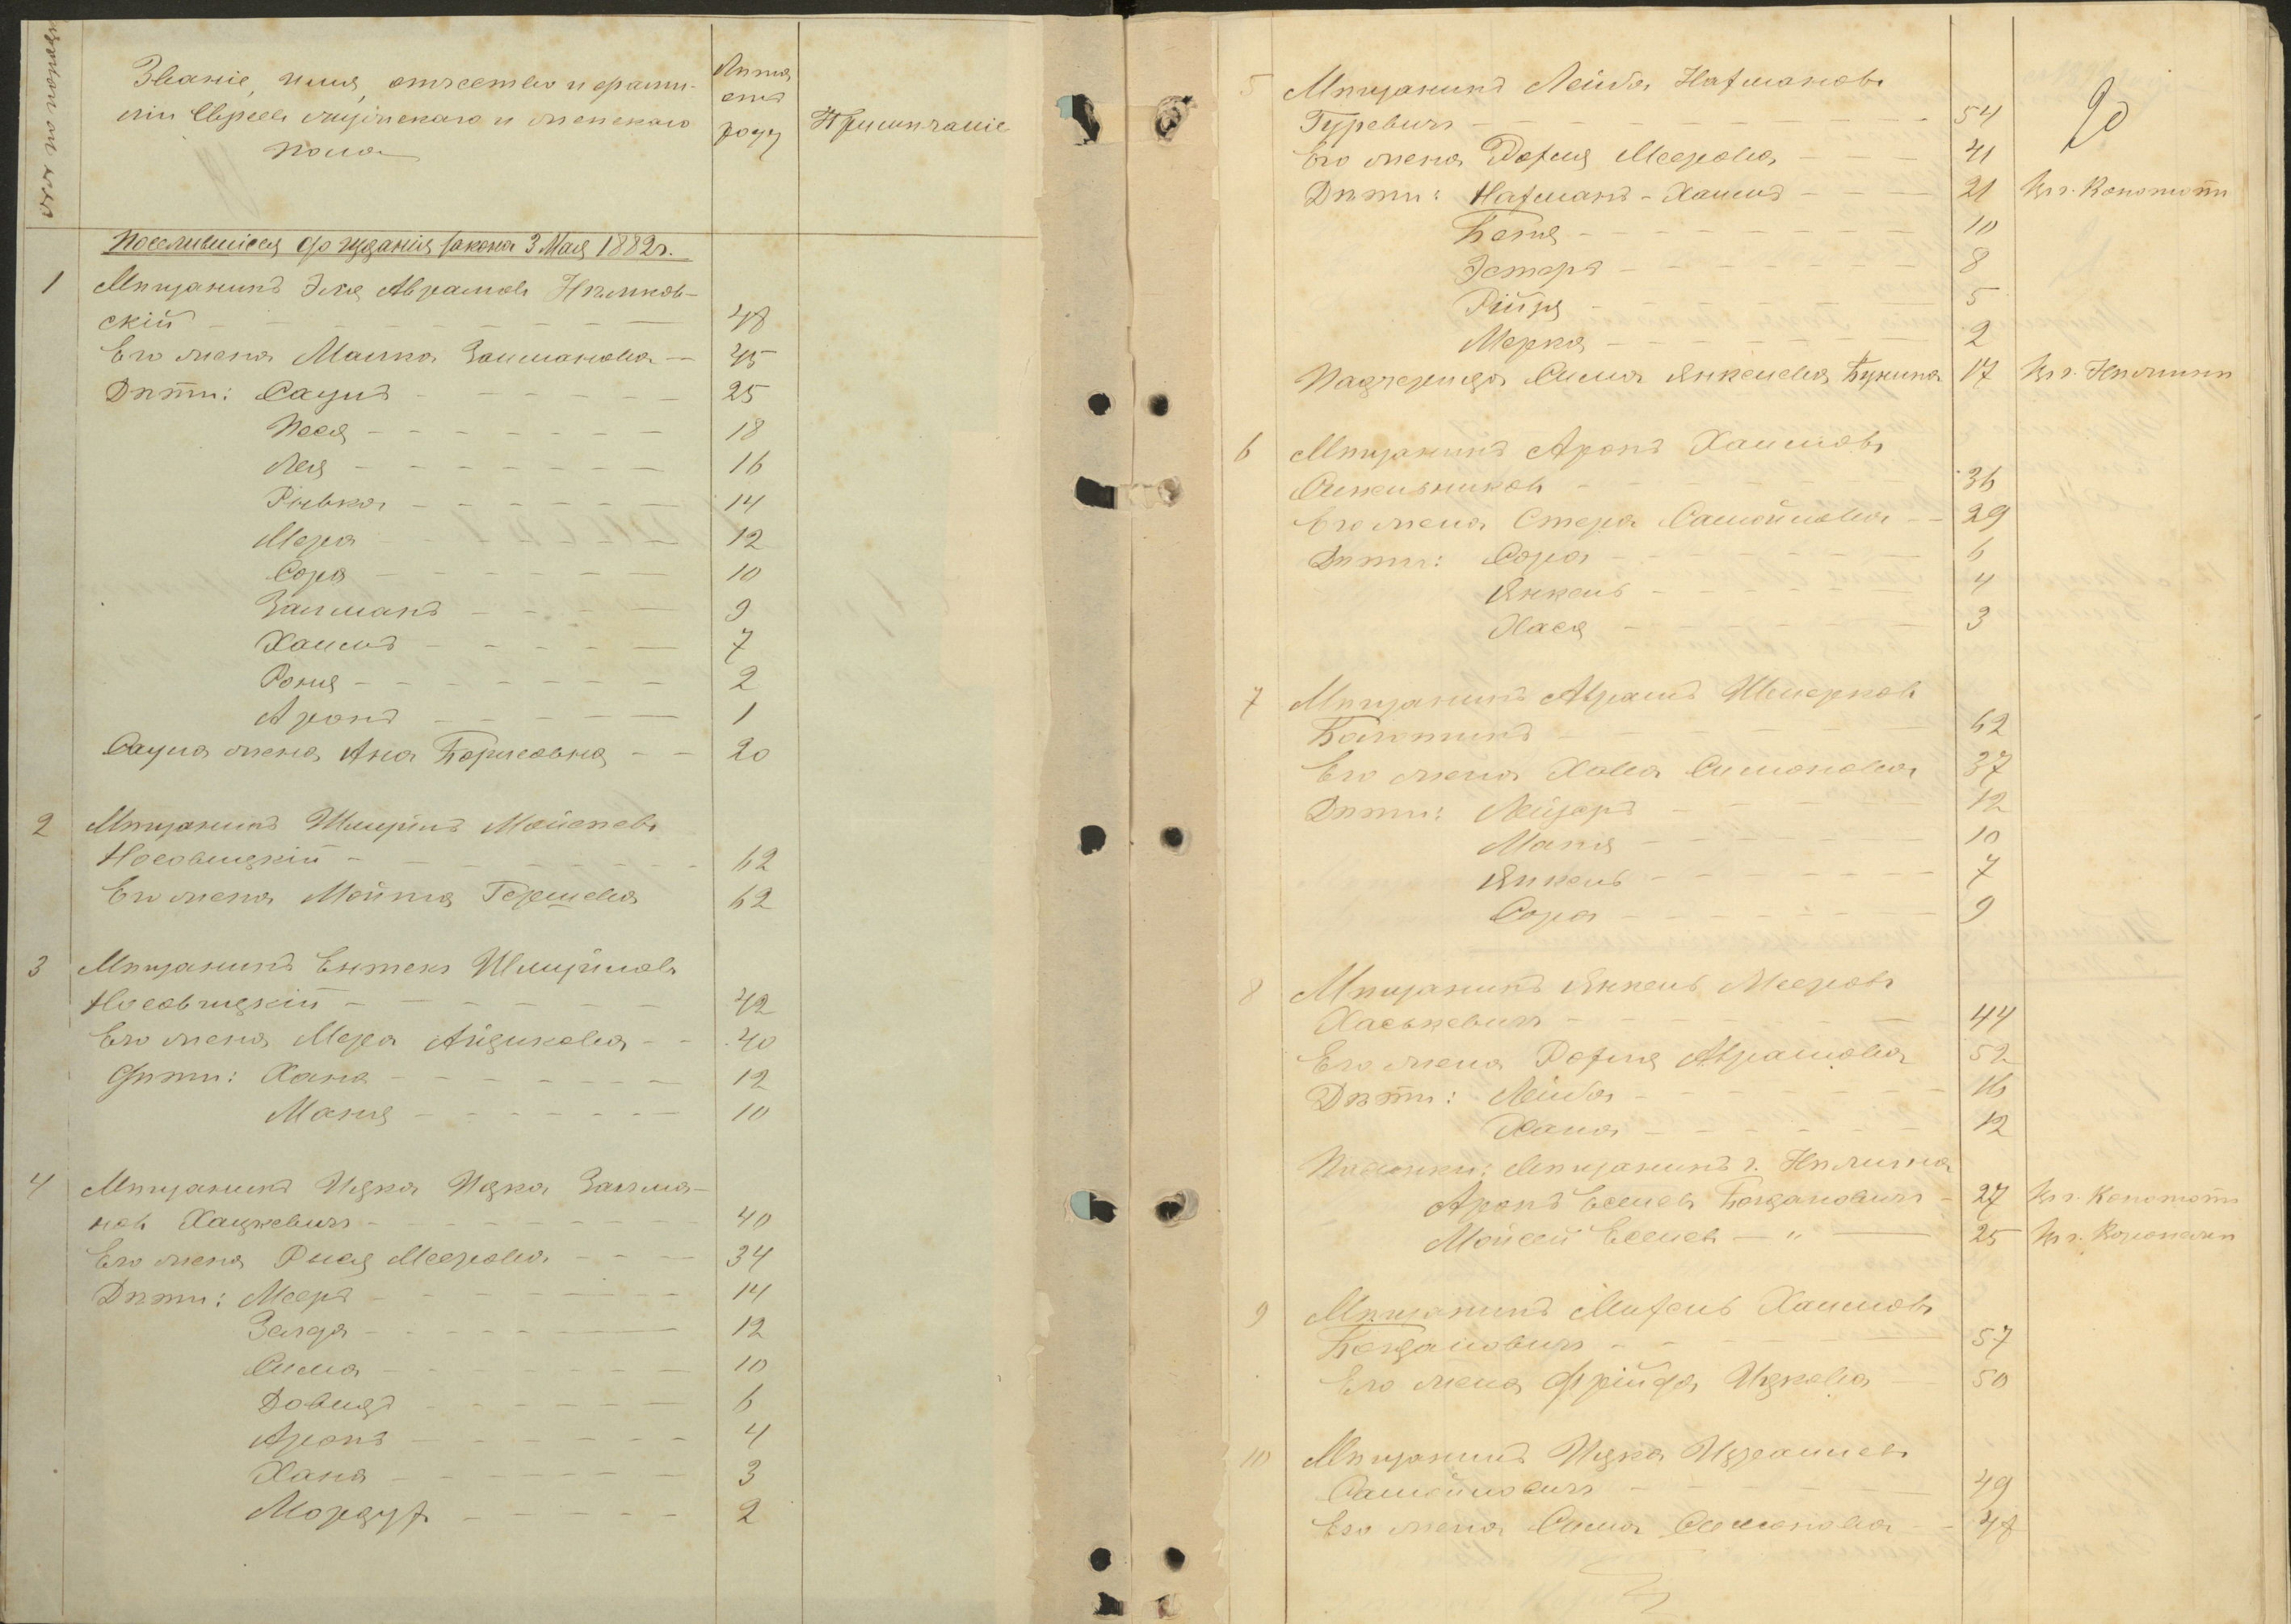 Званіе, имя, отчество и фами-
ліи Евреевъ мужскаго и женскаго
пола
Лѣта
отъ
роду
Примѣчаніе
Поселившіеся до изданія закона 3 Мая 1882 г.
1 Мѣщанинъ Эля Абрамовъ
скій 48
Его жена Малка Залманова 45
Дѣти: Саулъ 25
Песя 18
Лея 16
Ривка 14
Мера 12
Сора 10
Залманъ 9
Хаимъ 7
Роня 2
Аронъ 1
Саула жена Ана Борисовна 20
2 Мѣщанинъ Шмуйлъ
Носовицкій 62
Его жена Гершева 62
3 Мѣщанинъ Шмуйловъ
Носовицкій 42
Его жена Мера Айзикова 40
Дѣти: Хана 12
Маня 10
4 Мѣщанинъ Ицка Ицка Залма-
новъ Хацкевичъ 40
Его жена Рися Меерова 34
Дѣти: Мееръ 14
Зелда 12
Сима 10
Довидъ 6
Аронъ 4
Хана 3
Мордухъ 2
20
5 Мѣщанинъ Лейба Нахмановъ
Гуревичъ 54
Его жена Рохля Меерова 41
Дѣти: Нахманъ-Хаимъ 21 Въ г. Конотопѣ
Беня 10
Эстеръ 8
Рійзя 5
Мерка 2
Падчерица Сима Янкелева Букина 17 Въ г. Нѣжинѣ
6 Мѣщанинъ Аронъ Хаимовъ
36
Его жена Стера Самойлова 29
Дѣти: Сора 6
Янкель 4
Хася 3
7 Мѣщанинъ Абрамъ Шмерковъ
Болотинъ 62
Его жена Хава Симонова 37
Дѣти: Лейзеръ 12
Маня 10
Янкель 7
Сора 9
8 Мѣщанинъ Янкель Мееровъ
Хаськевичъ 44
Его жена Рохля Абрамова 52
Дѣти: Лейба 16
Хана 12
Пасынки: Мѣщанинъ г. Нѣжина
Аронъ Еселевъ Богдановичъ 27 Въ г. Конотопѣ
Мойсей Еселевъ — " — 25 Въ г. Коропѣ
9 Мѣщанинъ Михель Хаимовъ
Богдановичъ 57
Его жена Фрійда Ицкова 50
10 Мѣщанинъ Ицка Израилевъ
Самойловичъ 49
Его жена Сима Симонова 48